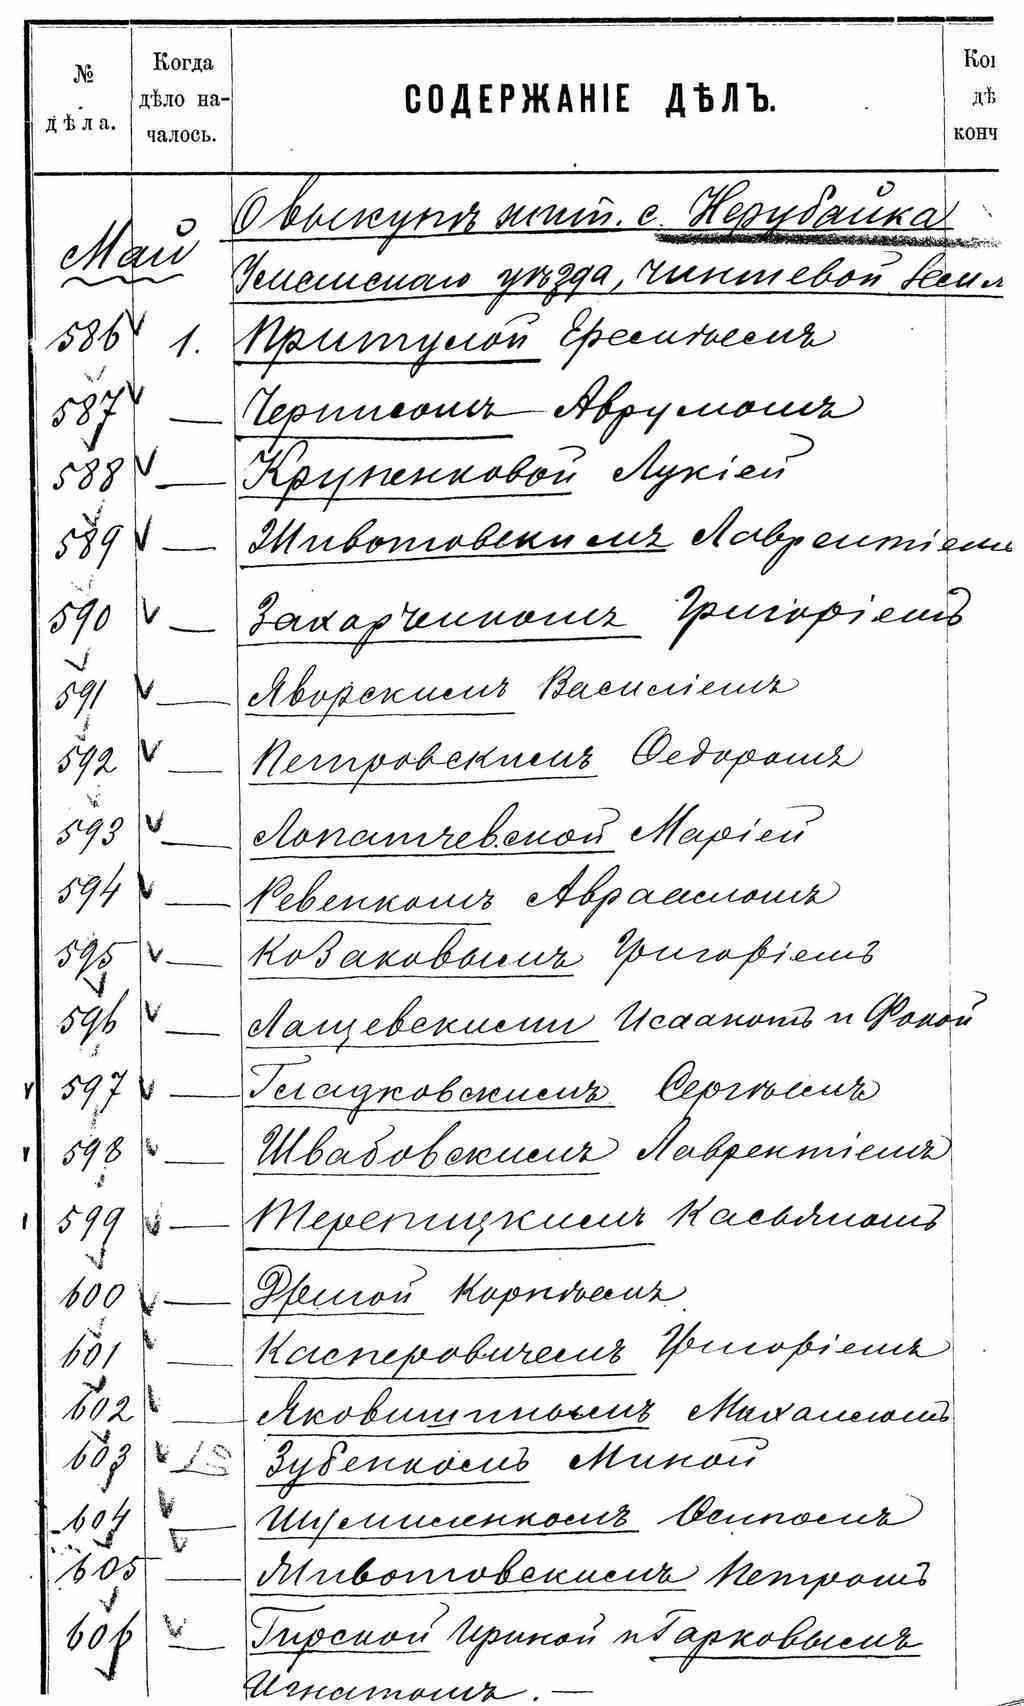 № дѣла.
Когда дѣло началось.
СОДЕРЖАНІЕ ДѢЛЪ.
Ко
дѣ
конч
Май
О выкупѣ жит. с. Нерубайка
Уманскаго уѣзда, чиншевой земл
586 1. Притулой Еремѣемъ
587 — Черписомъ Аврумомъ
588 — Крупенковой Лукіей
589 — Животовскимъ Лаврентіемъ
590 — Захарченкомъ Григоріемъ
591 — Яворскимъ Василіемъ
592 — Петровскимъ Ѳедоромъ
593 — Лопатчевской Маріей
594 — Ревенкомъ Авраамомъ
595 — Козаковымъ Григоріемъ
596 — Лащевскими Исаакомъ и Фокой
597 — Гладковскимъ Сергѣемъ
598 — Швабовскимъ Лаврентіемъ
599 — Терепицкимъ Касьяномъ
600 — Корнѣемъ
601 — Касперовичемъ Григоріемъ
602 — Яковишинымъ Михаиломъ
603 Зубенкомъ Миной
604 — Осипомъ
605 — Животовскимъ Петромъ
606 — Гирской Ириной и Гарковымъ
Игнатомъ. —